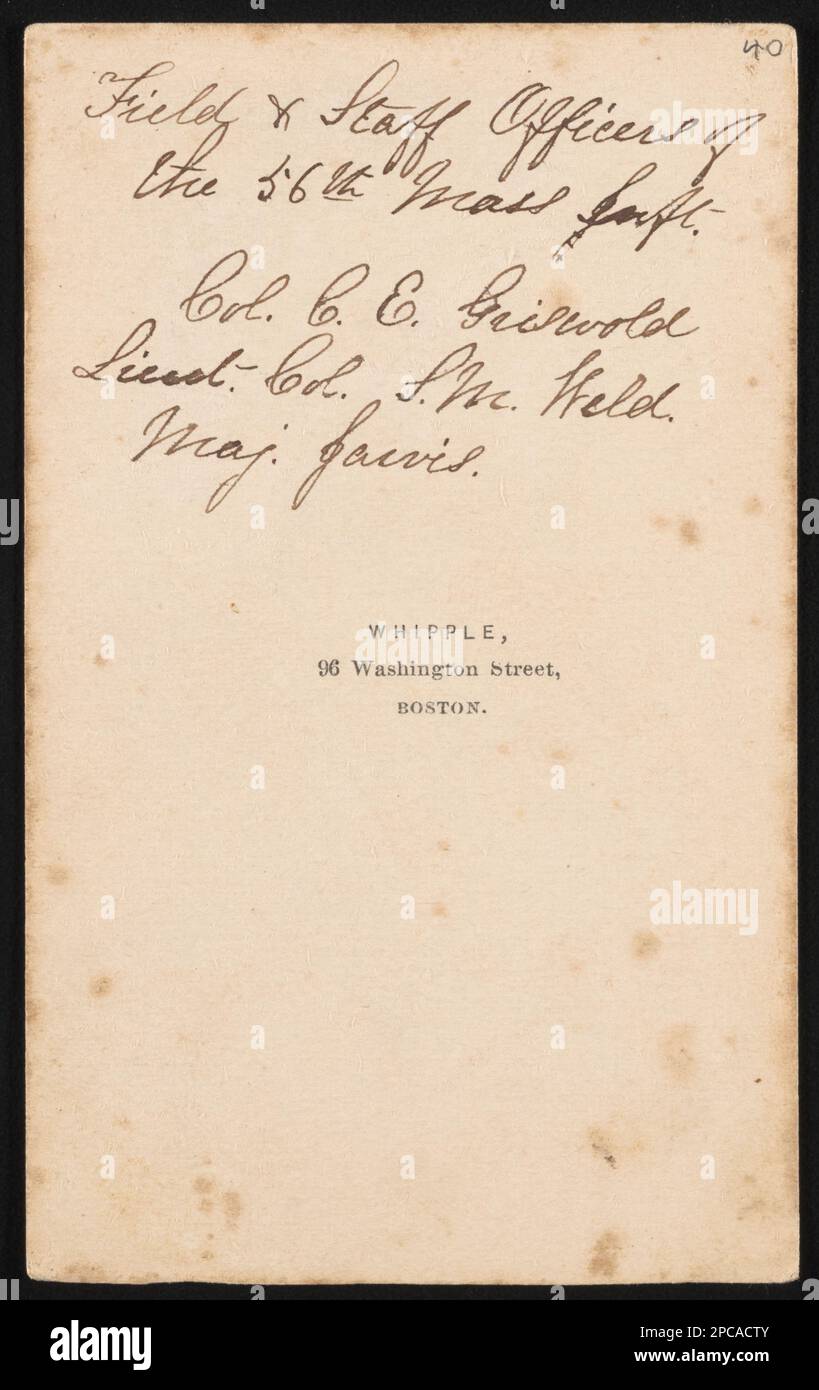 40
Field & Staff Officers of
the 56th Mass Inft.
Col. C. E. Griswold
Lieut. Col. S. M. Weld.
Maj. Jarvis.
WHIPPLE,
96 Washington Street,
BOSTON.
alamy
alamy
Image ID: 2PCACTY
www.alamy.com